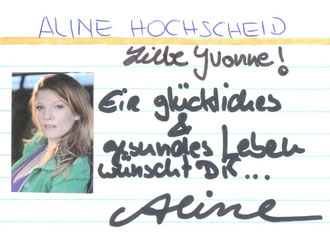 ALINE HOCHSCHEID
Liebe Yvonne!
Ein glückliches
&
gesundes Leben
wünscht Dir...
Aline